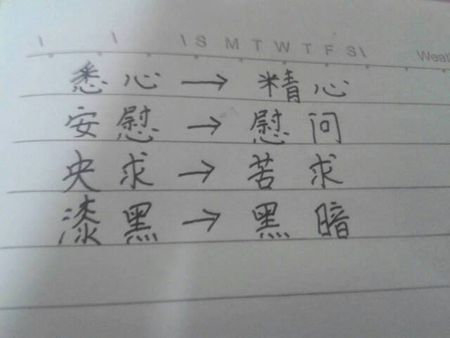 S M T W T F S
Weat
悉心→精心
安慰→慰问
央求→苦求
漆黑→黑暗